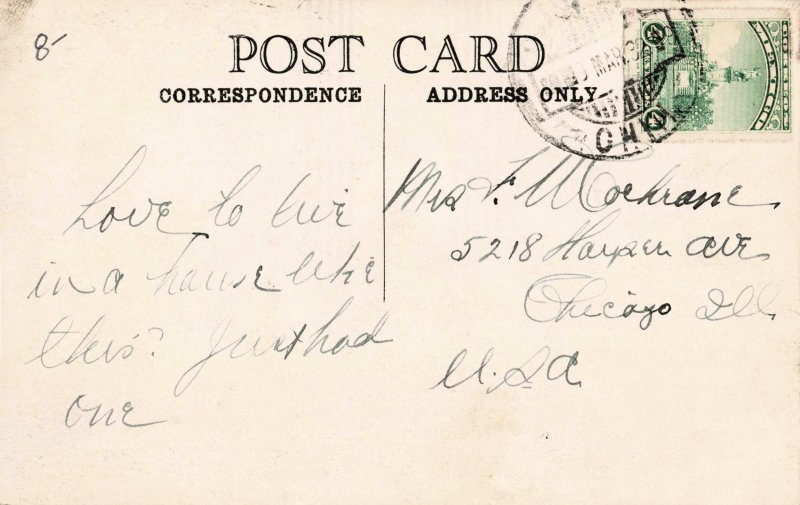 8-
POST CARD
CORRESPONDENCE
ADDRESS ONLY
MAR
Love to live
in a house like
this? Just had
one
Mrs F. M Cochrane
5218 Harper Ave
Chicago Ill
U.S.A.